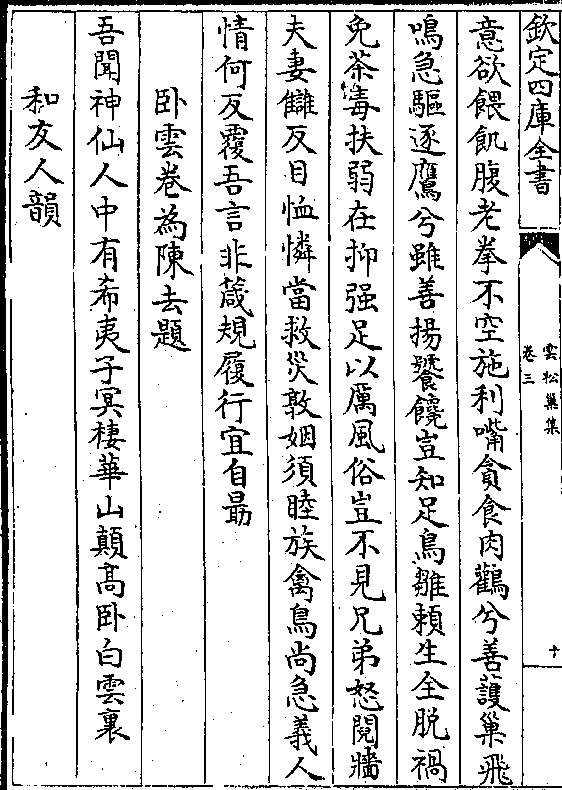 欽定四庫全書
雲松巢集
卷三
十
意欲餵飢腹老拳不空施利嘴貪食肉鸛兮善護巢飛
鳴急驅逐鷹兮雖善揚饕餮豈知足鳥雛賴生全脱禍
免荼毒扶弱在抑强足以厲風俗豈不見兄弟怒鬩牆
夫妻讎反目恤憐當救災敦姻須睦族禽鳥尚急義人
情何反覆吾言非箴規履行宜自勗
卧雲卷為陳去題
吾聞神仙人中有希夷子冥棲華山顛髙卧白雲裏
和友人韻